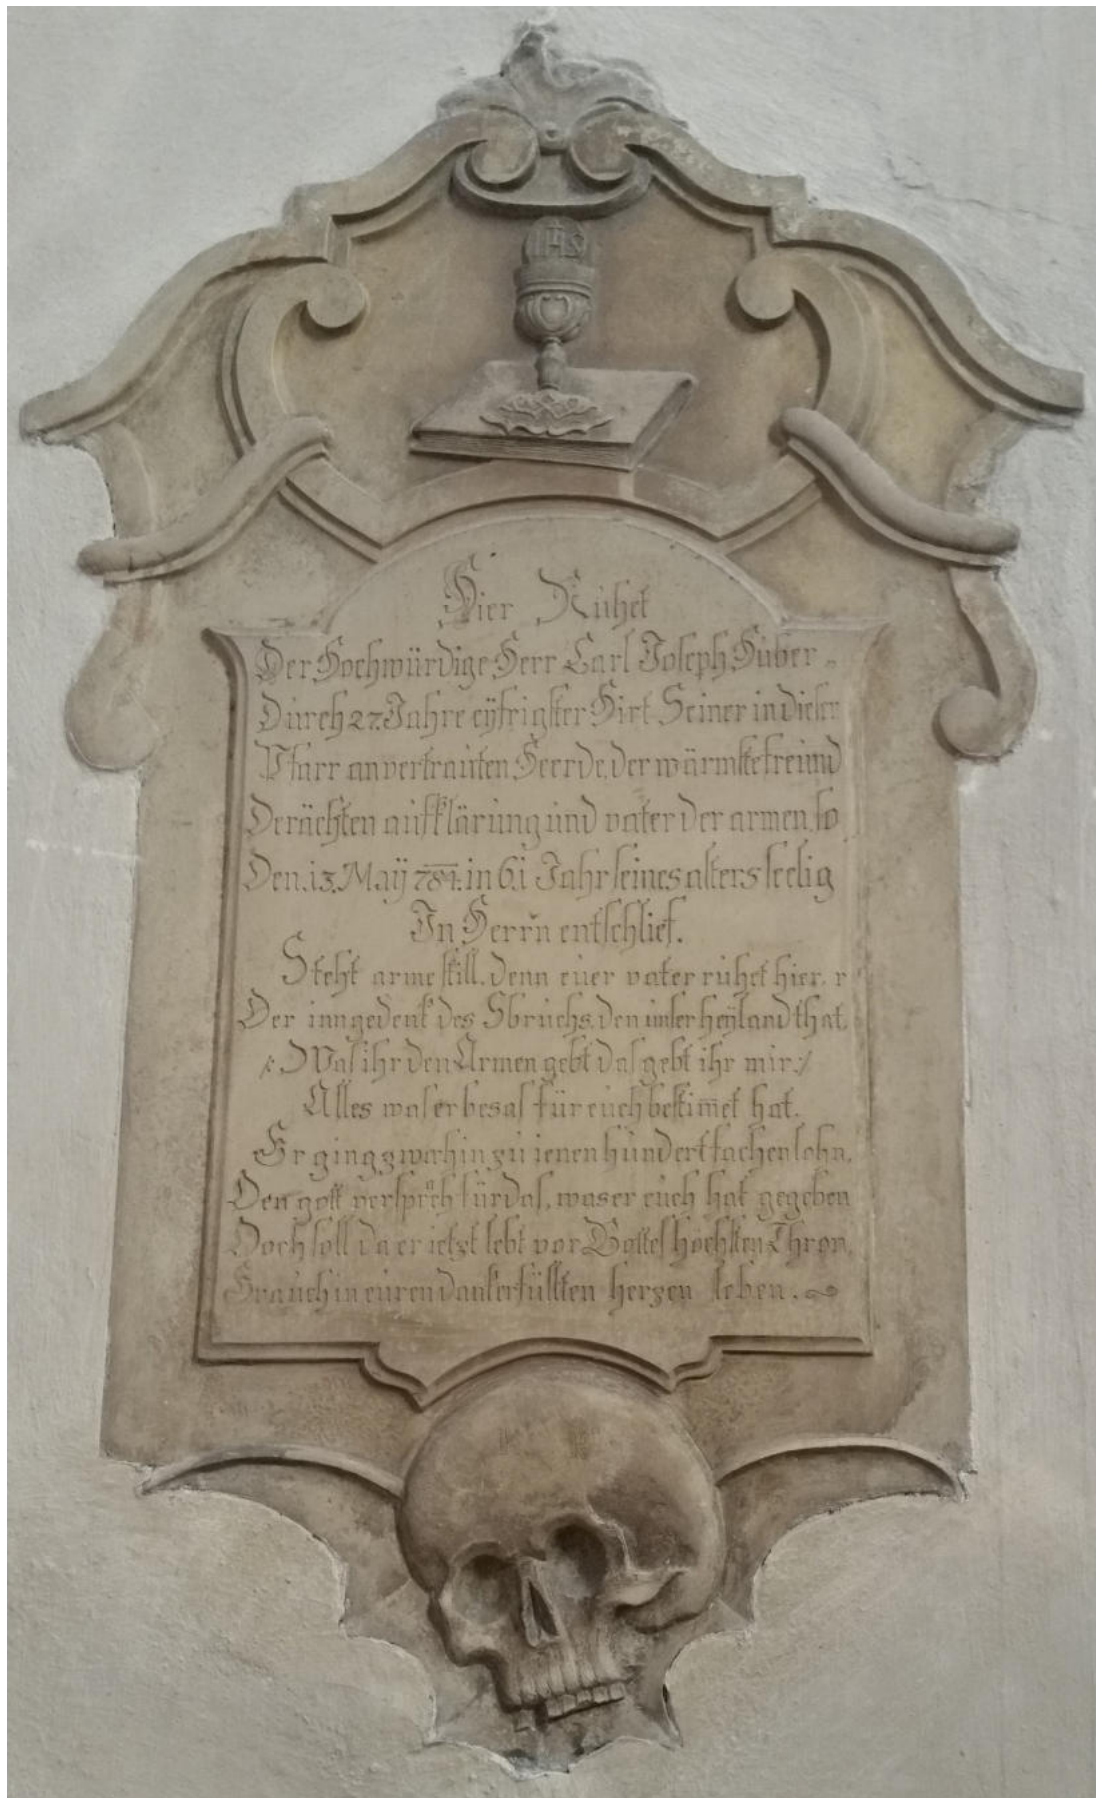 IHS
Hier Ruhet
Der Hochwürdige Herr Carl Joseph Huber
Durch 27. Jahre eyfrigster Hirt Seiner in dieser
Pfarr anvertrauten Heerde, der wärmste freund
Der ächten aufklärung und vater der armen, so
Den .13. Maÿ 784. in 61 Jahr seines alters seelig
In Herrn entschlief.
Steht arme still. denn euer vater ruhet hier.
Der inngedenk des Sbruchs, den unser heÿland that,
/: Was ihr den Armen gebt das gebt ihr mir :/
Alles was er besas für euch bestim̅et hat.
Er ging zwar hin zu ienen hundertfachen lohn,
Den gott versprach für das, was er euch hat gegeben
Doch soll da er ietzt lebt vor Gottes höchsten Thron,
Er auch in euren dankerfüllten herzen leben.